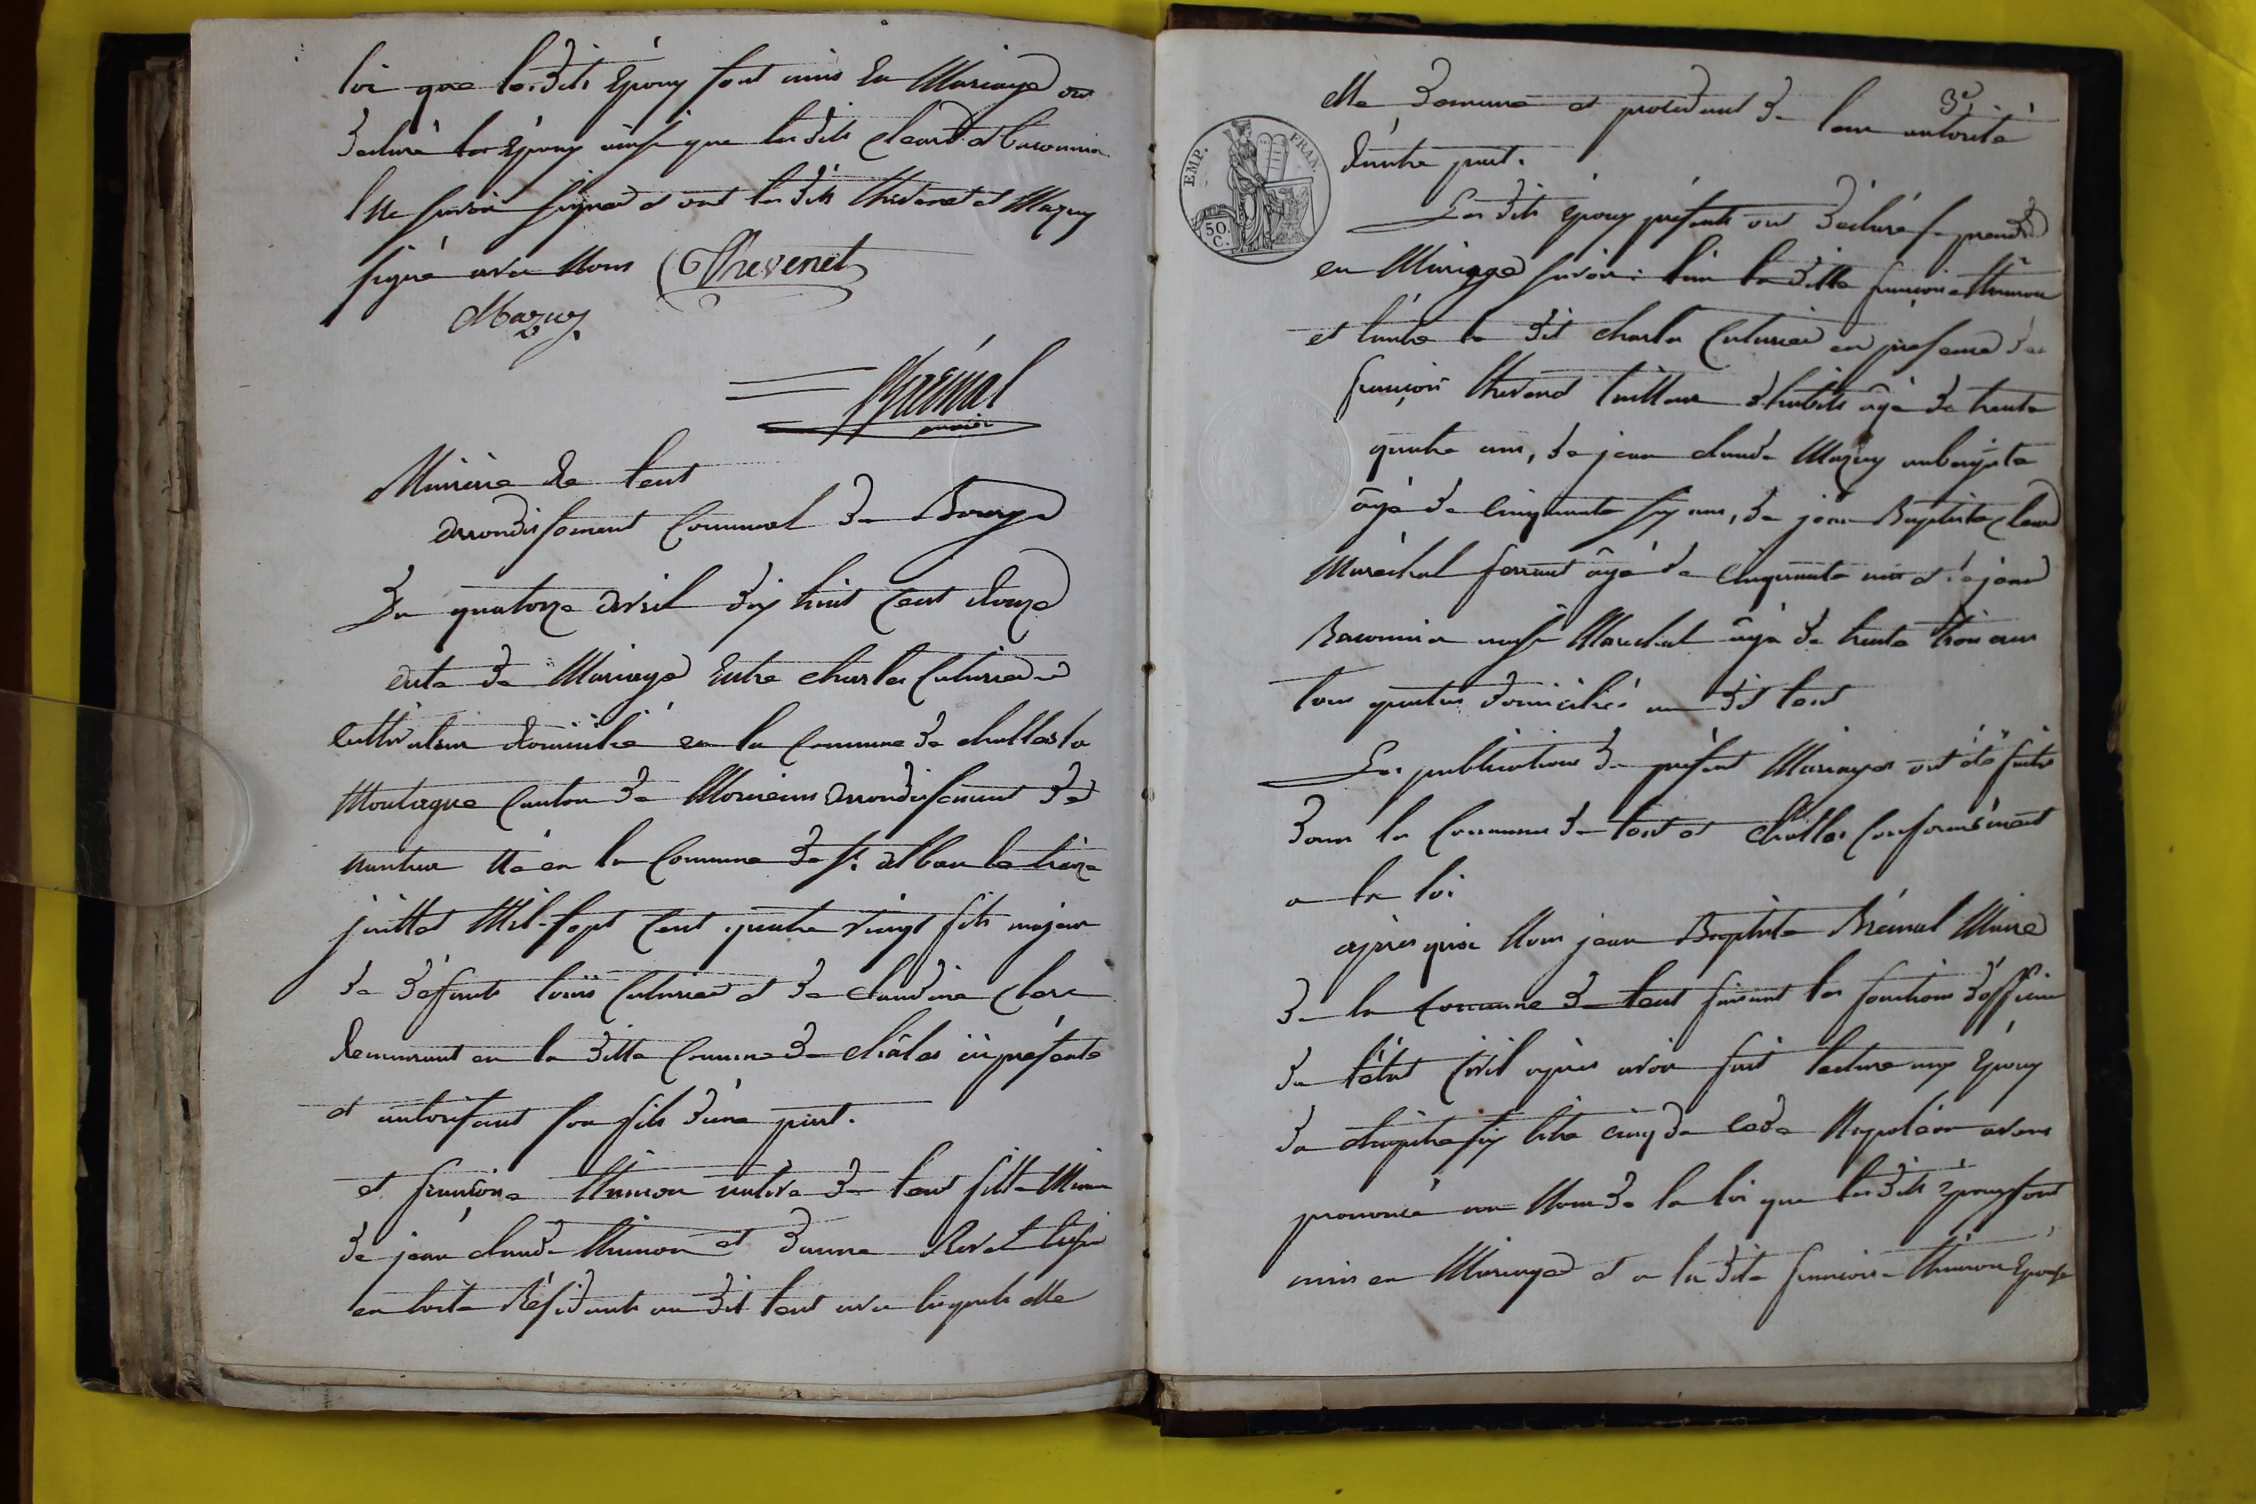 loi que lesdits Epoux sont unis en Mariage ont
déclaré les Epoux ainsi que les dits Clerd et Baconnier
Ne savoir signer et ont les dits thevenet et Mazuy
signé avec Nous Thevenet
Mazuy
Brérnal
maire
Mairerie de tent
arrondissement Communal de Bourg
Du quatorze avril dix huit Cent douze
acte de Mariage Entre charles Cuturier
Cultivateur domicilié en la Commune de challes la
Montagne Canton de arrondissement de
nantua Né en la Commune de st. alban le treize
juillet Mil-sept Cent quatre vingt fils majeur
de défunts loüis Cuturier et de claudine Clerc
demeurant en la ditte Commune de châles ici présente
et autorisant son fils d'une part.
et françoise thinon native de tent fille Mineure
de jean claude thinon et d'anne Revel
Résidants au dit tent avec lesquels elle
3e
elle demeure et procédant de leur autorité
d'autre part.
Les dits époux présents ont déclaré se prendre
en Mariage savoir: l'un la ditte françoise thinon
et l'autre le dit charles Cuturier en présence de
françois thevenet tailleur d'habits âgé de trente
quatre ans, de jean claude Mazuy aubergiste
âgé de Cinquante six ans, de jean Baptiste Clerd
Maréchal ferrant âgé de Cinquante ans et de jean
Baconnier aussi Marechal âgé de trente trois ans
tous quatre domiciliés au dit tent
Les publications du présent Mariage ont été faites
dans les Communes de tent et challes Conformément
a la loi
après quoi Nous jean Baptiste Maire
de la Commune de tent faisant les fonctions d'officier
de l'état Civil après avoir fait lecture aux Epoux
du chapitre six titre cinq du code Napoléon avons
prononcé au Nom de la loi que les dits époux sont
unis en Mariage et a la dite françoise thinon Epouse
EMP. FRAN.
50.
C.